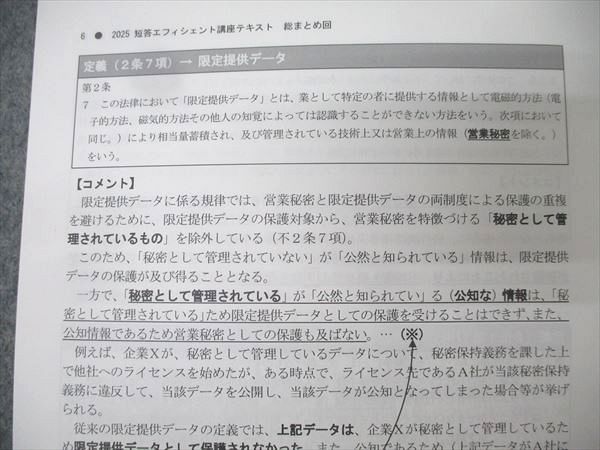 6 ● 2025 短答エフィシェント講座テキスト 総まとめ回
定義（２条７項）→ 限定提供データ
第２条
７ この法律において「限定提供データ」とは、業として特定の者に提供する情報として電磁的方法（電
子的方法、磁気的方法その他人の知覚によっては認識することができない方法をいう。次項において
同じ。）により相当量蓄積され、及び管理されている技術上又は営業上の情報（営業秘密を除く。）
をいう。
【コメント】
限定提供データに係る規律では、営業秘密と限定提供データの両制度による保護の重複
を避けるために、限定提供データの保護対象から、営業秘密を特徴づける「秘密として管
理されているもの」を除外している（不２条７項）。
このため、「秘密として管理されていない」が「公然と知られている」情報は、限定提供
データの保護が及び得ることとなる。
一方で、「秘密として管理されている」が「公然と知られてい」る（公知な）情報は、「秘
密として管理されている」ため限定提供データとしての保護を受けることはできず、また、
公知情報であるため営業秘密としての保護も及ばない。…（※）
例えば、企業Ｘが、秘密として管理しているデータについて、秘密保持義務を課した上
で他社へのライセンスを始めたが、ある時点で、ライセンス先であるＡ社が当該秘密保持
義務に違反して、当該データを公開し、当該データが公知となってしまった場合等が挙げ
られる。
従来の限定提供データの定義では、上記データは、企業Ｘが秘密として管理しているた
め限定提供データとして保護されなかった。また、公知であるため（上記データがＡ社に